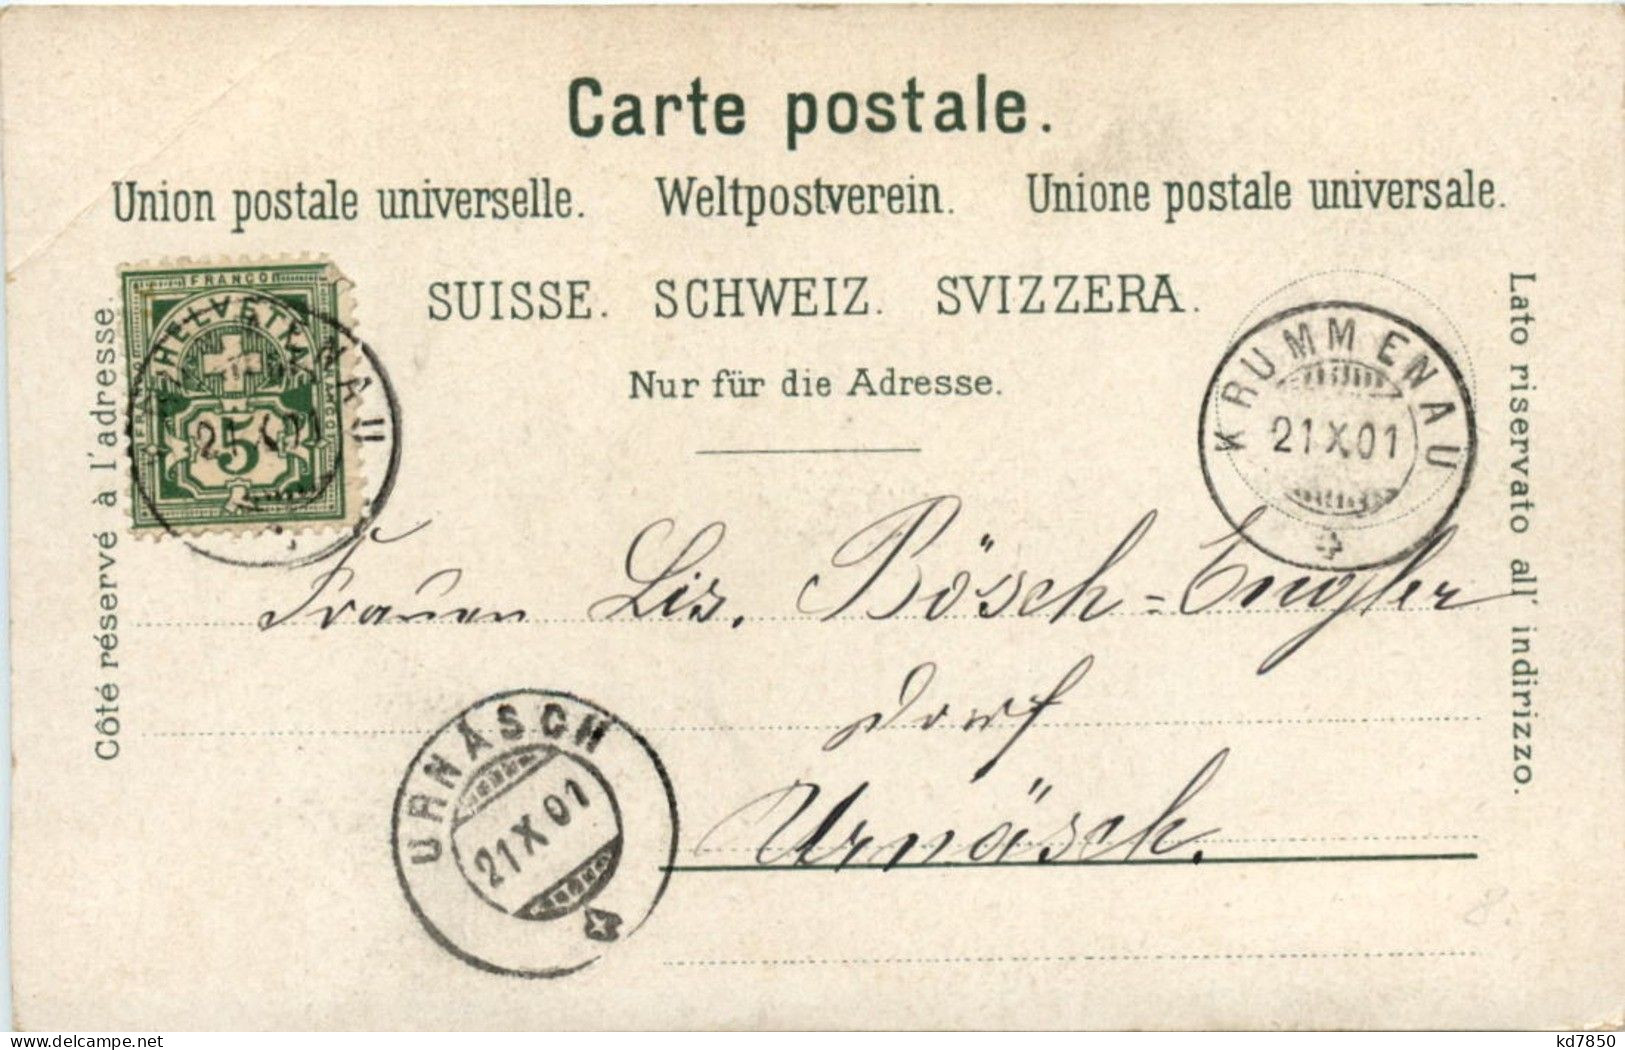 Carte postale.
Union postale universelle. Weltpostverein. Unione postale universale.
SUISSE. SCHWEIZ. SVIZZERA.
Nur für die Adresse.
Côté réservé à l'adresse.
Lato riservato all' indirizzo.
FRANCO
HELVETIA
5
NAU
KRUMMENAU
21 X 01
Frauen Lis. Bösch-Engler
Dorf
Urnäsch.
URNÄSCH
21 X 01
8.
kd7850